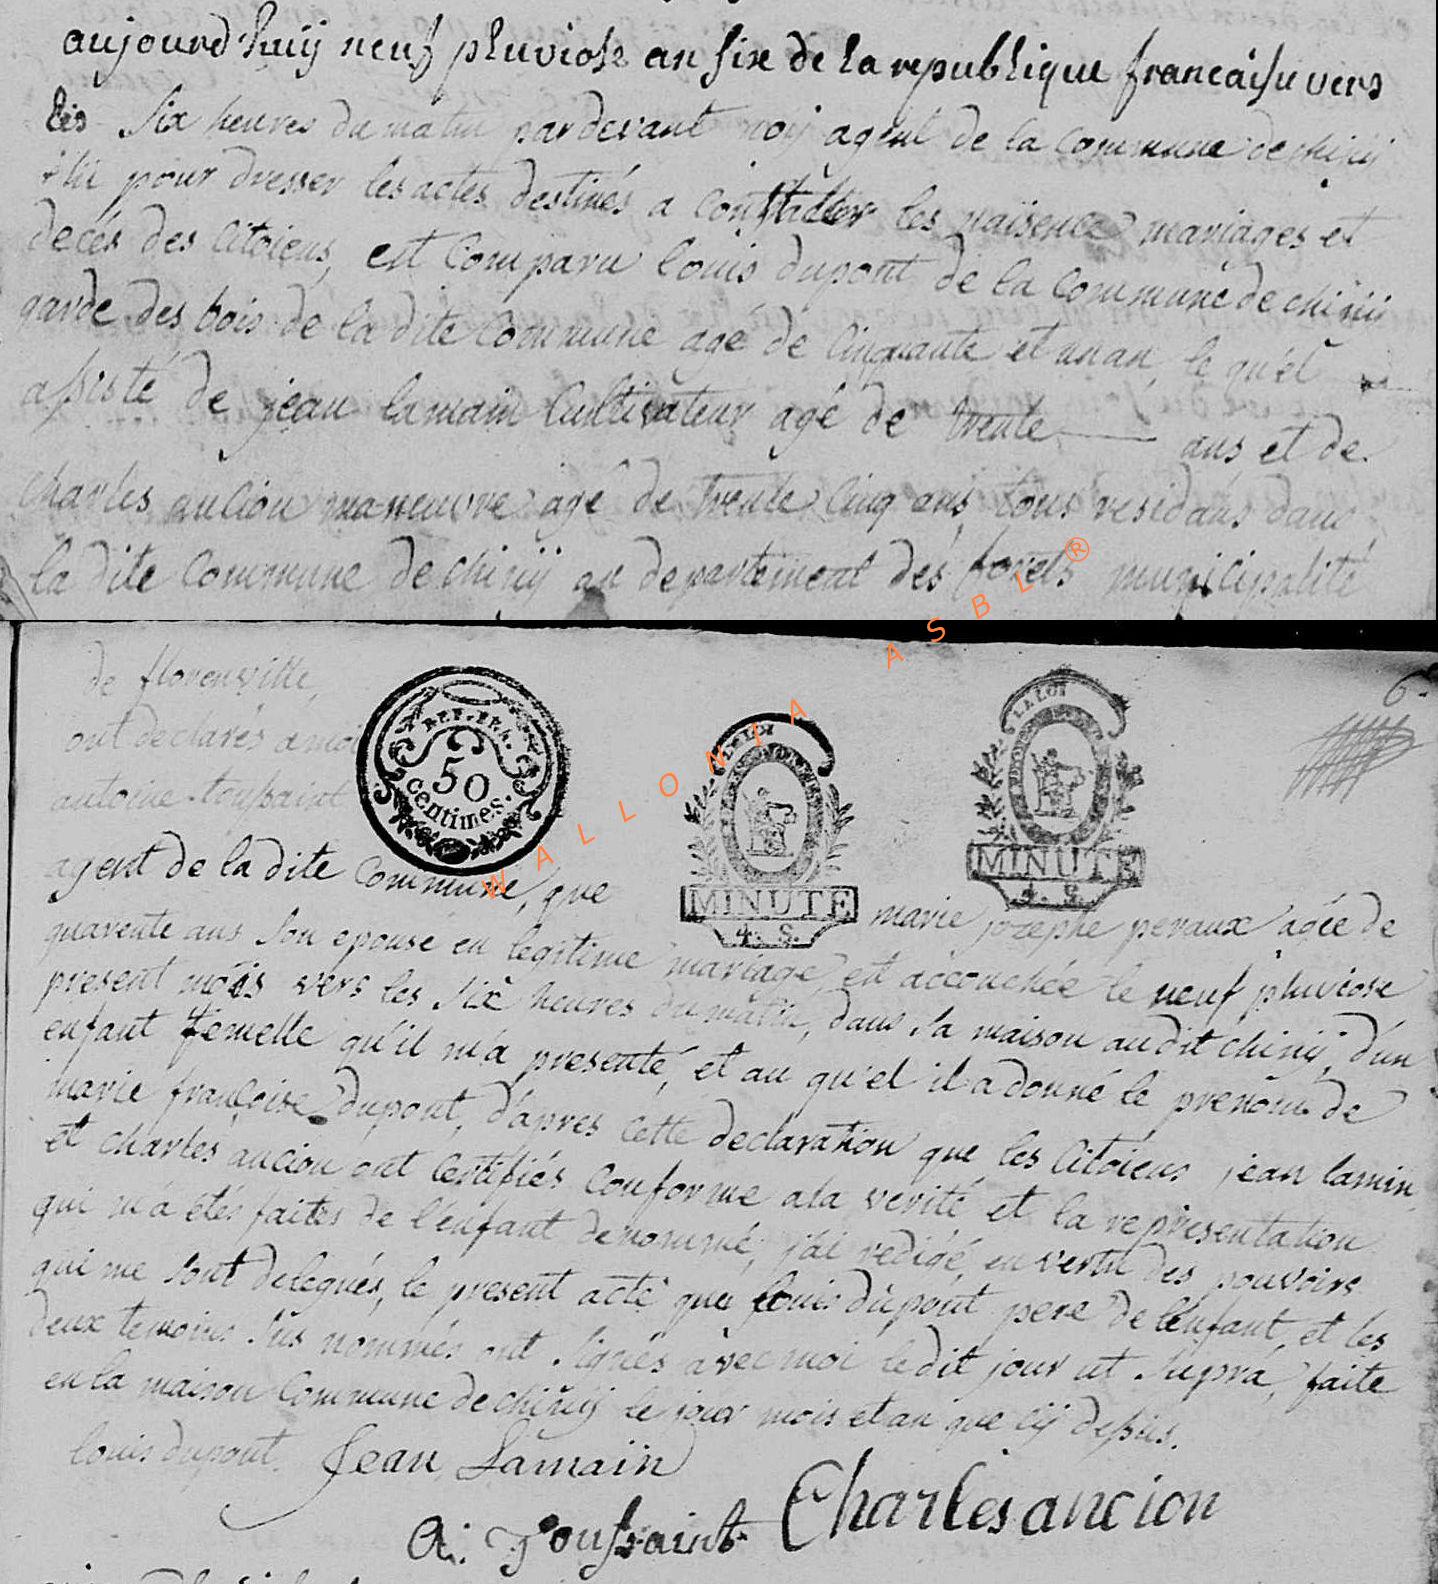 aujourd'huij neuf pluviose an sixe de la republique francaise vers
les six heures du matin pardevant moij agent de la commune de chinij
élu pour dresser les actes destinés a constater les naisence mariages et
decés des citoiens, est comparu louis dupont de la commune de chinij
garde des bois de la dite commune agé de cinquante et un an, le quel
assisté de jean lamain cultivateur agé de trente ans et de
charles ancion maneuvre agé de trente cinq ans, tous residans dans
la dite commune de chinij au departement des forets municipalité
de florenville,
ont declarés a moi
antoine toussaint
agent de la dite commune, que marie jozephe peraux agée de
quarente ans son epouse en legitime mariage est accouchée le neuf pluviose
present mois vers les six heures du matin, dans sa maison audit chinij, d'un
enfant femelle qu'il m'a presenté, et au qu'el il a donné le prenom de
marie françoise dupont, d'apres cette declaration que les citoiens jean lamin
et charles ancion ont certifiés conforme a la verité et la representation
qui m'a étés faites de l'enfant denommé, j'ai redigé, en vertu des pouvoirs
qui me sont delegués, le present acte que louis dupont pere de l'enfant, et les
deux temoins sus nommés ont signés avec moi le dit jour ut supra, faite
en la maison commune de chinij le jour mois et an que cij dessus.
louis dupont. Jean Lamain
A: Toussaint Charles ancion
REP. FRA.
50
centimes.
LA LOI
MINUTE
4. S.
LA LOI
MINUTE
4. S.
6.
WALLONIA ASBL ®